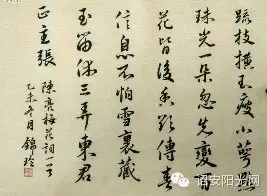 疏枝橫玉瘦小萼點
珠光一朵忽先變百
花皆後香欲傳春
信息不怕雪裏藏
玉笛休三弄東君
正主張
陳亮梅花詞一首
乙未冬月錦玲
诏安阳光网